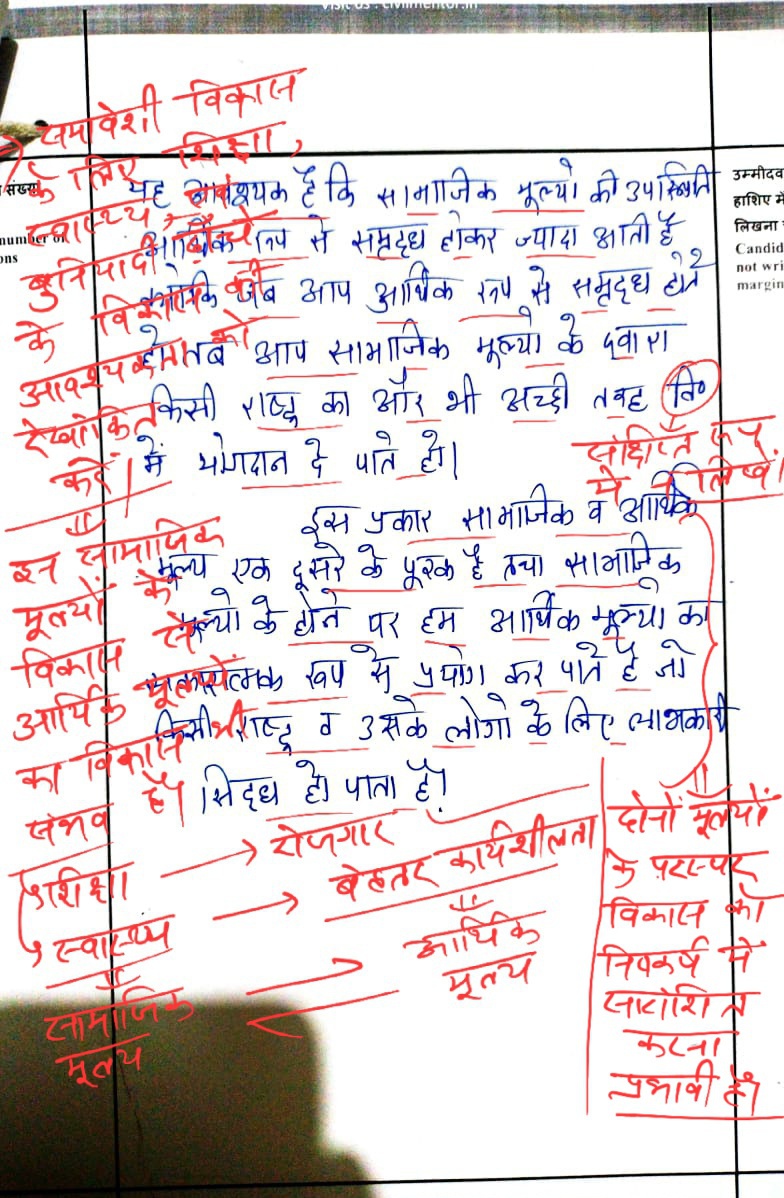 visit us : civilmentor.in
समावेशी विकास
के लिए शिक्षा,
स्वास्थ्य, जैसे
बुनियादी
के विकास की
आवश्यकता को
रेखांकित
करें।
इन सामाजिक
मूल्यों के
विकास से
आर्थिक मूल्यों
का विकास भी
संभव है।
संख्या
number of
ons
यह आवश्यक है कि सामाजिक मूल्यो की उपस्थिति
आर्थिक रूप से समृद्ध होकर ज्यादा आती है
क्योंकि जब आप आर्थिक रूप से समृद्ध होते
हो तब आप सामाजिक मूल्यो के द्वारा
किसी राष्ट्र का और भी अच्छी तरह वि०
में योगदान दे पाते हो।
संक्षिप्त रूप
में न लिखें।
इस प्रकार सामाजिक व आर्थिक
मूल्य एक दूसरे के पूरक है तथा सामाजिक
मूल्यो के होने पर हम आर्थिक मूल्यो का
सकारात्मक रूप से प्रयोग कर पाते है जो
किसी राष्ट्र व उसके लोगो के लिए लाभकारी
सिद्ध हो पाता है।
शिक्षा → रोजगार
स्वास्थ्य → बेहतर कार्यशीलता
सामाजिक
मूल्य
आर्थिक
मूल्य
दोनों मूल्यों
के परस्पर
विकास को
निष्कर्ष में
सारांशित
करना
प्रभावी है।
उम्मीदव
हाशिए में
लिखना
Candid
not wri
margin